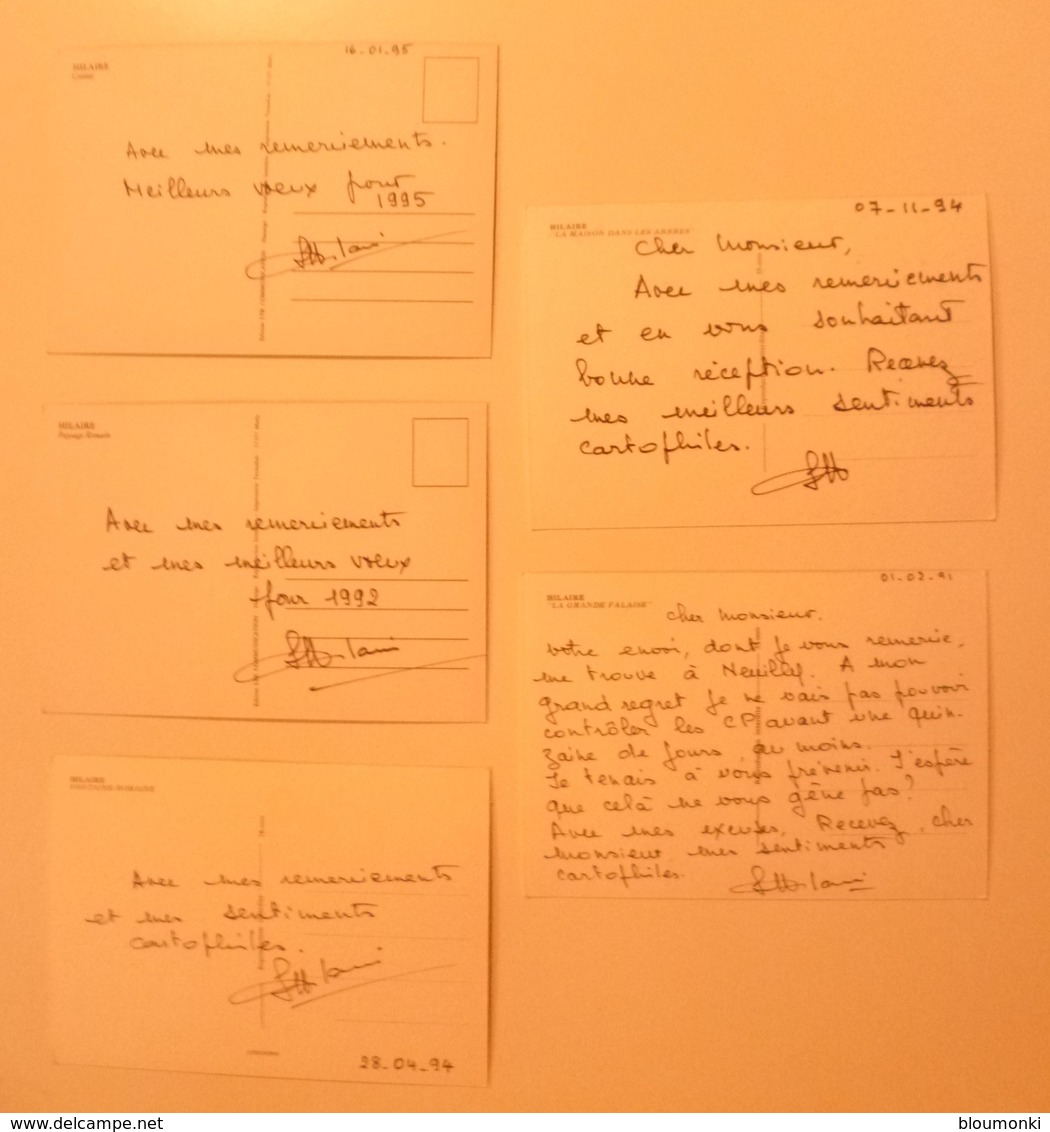 HILAIRE
16-01-95
Avec mes remerciements.
Meilleurs vœux pour
1995
HILAIRE
Paysage Romain
Avec mes remerciements
et mes meilleurs vœux
pour 1992
HILAIRE
FONTAINE ROMAINE
Avec mes remerciements
et mes sentiments
cartophiles.
28-04-94
07-11-94
HILAIRE
"LA MAISON DANS LES ARBRES"
Cher Monsieur,
Avec mes remerciements
et en vous souhaitant
bonne réception. Recevez
mes meilleurs sentiments
cartophiles.
01-02-91
HILAIRE
"LA GRANDE FALAISE"
Cher Monsieur.
Votre envoi, dont je vous remercie,
me trouve à Neuilly. A mon
grand regret je ne vais pas pouvoir
contrôler les CP avant une quin-
zaine de jours au moins.
Je tenais à vous prévenir. J'espère
que celà ne vous gêne pas?
Avec mes excuses, Recevez, cher
monsieur mes sentiments
cartophiles.
www.delcampe.net
bloumonki